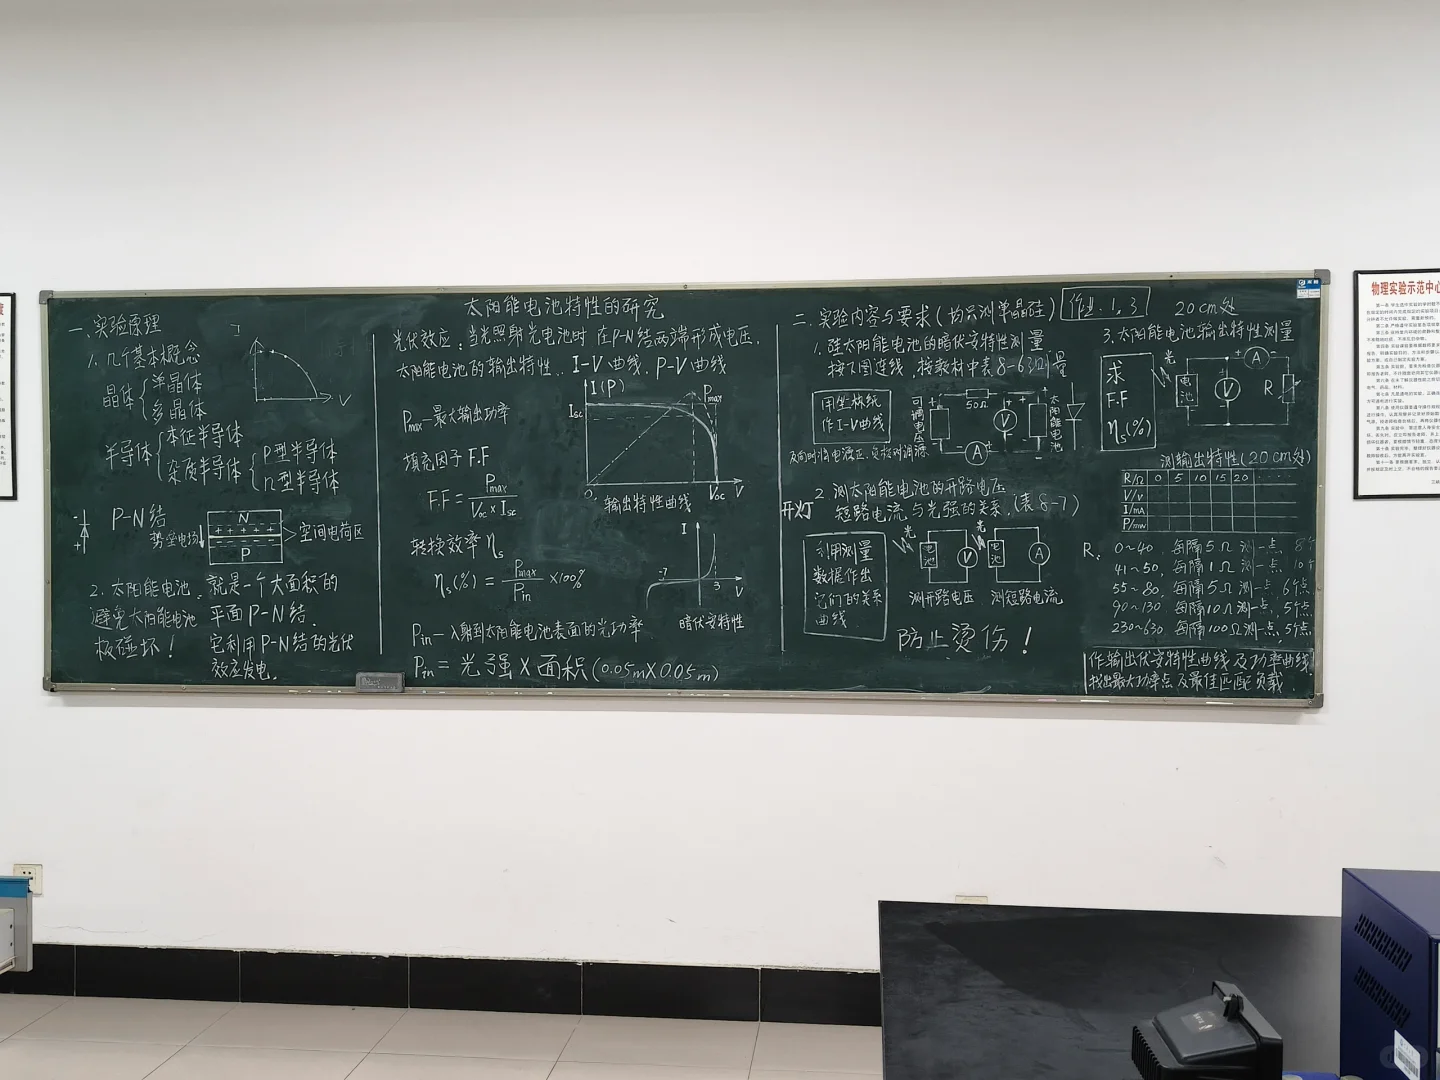 太阳能电池特性的研究
一.实验原理
1.几个基本概念
晶体{单晶体
多晶体
半导体{本征半导体
杂质半导体{P型半导体
n型半导体
I
V
P-N结
势垒电场
N
+ + + + +
P
空间电荷区
2.太阳能电池:就是一个大面积的
平面P-N结.
它利用P-N结的光伏
效应发电.
避免太阳能电池
板碰坏!
光伏效应:当光照射光电池时 在P-N结两端形成电压.
太阳能电池的输出特性:I-V曲线.P-V曲线
Pmax—最大输出功率
填充因子F.F
F.F = Pmax / Voc × Isc
转换效率 ηs
ηs(%) = Pmax / Pin ×100%
Pin—入射到太阳能电池表面的光功率
Pin = 光强×面积(0.05m×0.05m)
I(P)
Isc
Pmax
O
Voc V
输出特性曲线
I
-7
3
V
暗伏安特性
二.实验内容与要求(均只测单晶硅)
作业.1,3
20cm处
1.硅太阳能电池的暗伏安特性测量
按下图连线,按教材中表8-6测量
用坐标纸
作I-V曲线
可调电压
50Ω
V
A
太阳能电池
开灯
2.测太阳能电池的开路电压
短路电流与光强的关系.(表8-7)
利用测量
数据作出
它们的关系
曲线
光
电池
V
测开路电压
光
电池
A
测短路电流
防止烫伤!
3.太阳能电池输出特性测量
求
F.F
ηs(%)
光
电池
V
A
R
测输出特性(20cm处)
R/Ω 0 5 10 15 20 ····
V/v
I/mA
P/mw
R: 0~40, 每隔5Ω测一点. 8个
41~50, 每隔1Ω测一点. 10个
55~80, 每隔5Ω测一点, 6个点
90~130, 每隔10Ω测一点, 5个点
230~630 每隔100Ω测一点, 5个点
作输出伏安特性曲线及功率曲线
找出最大功率点及最佳匹配负载.
物理实验示范中心